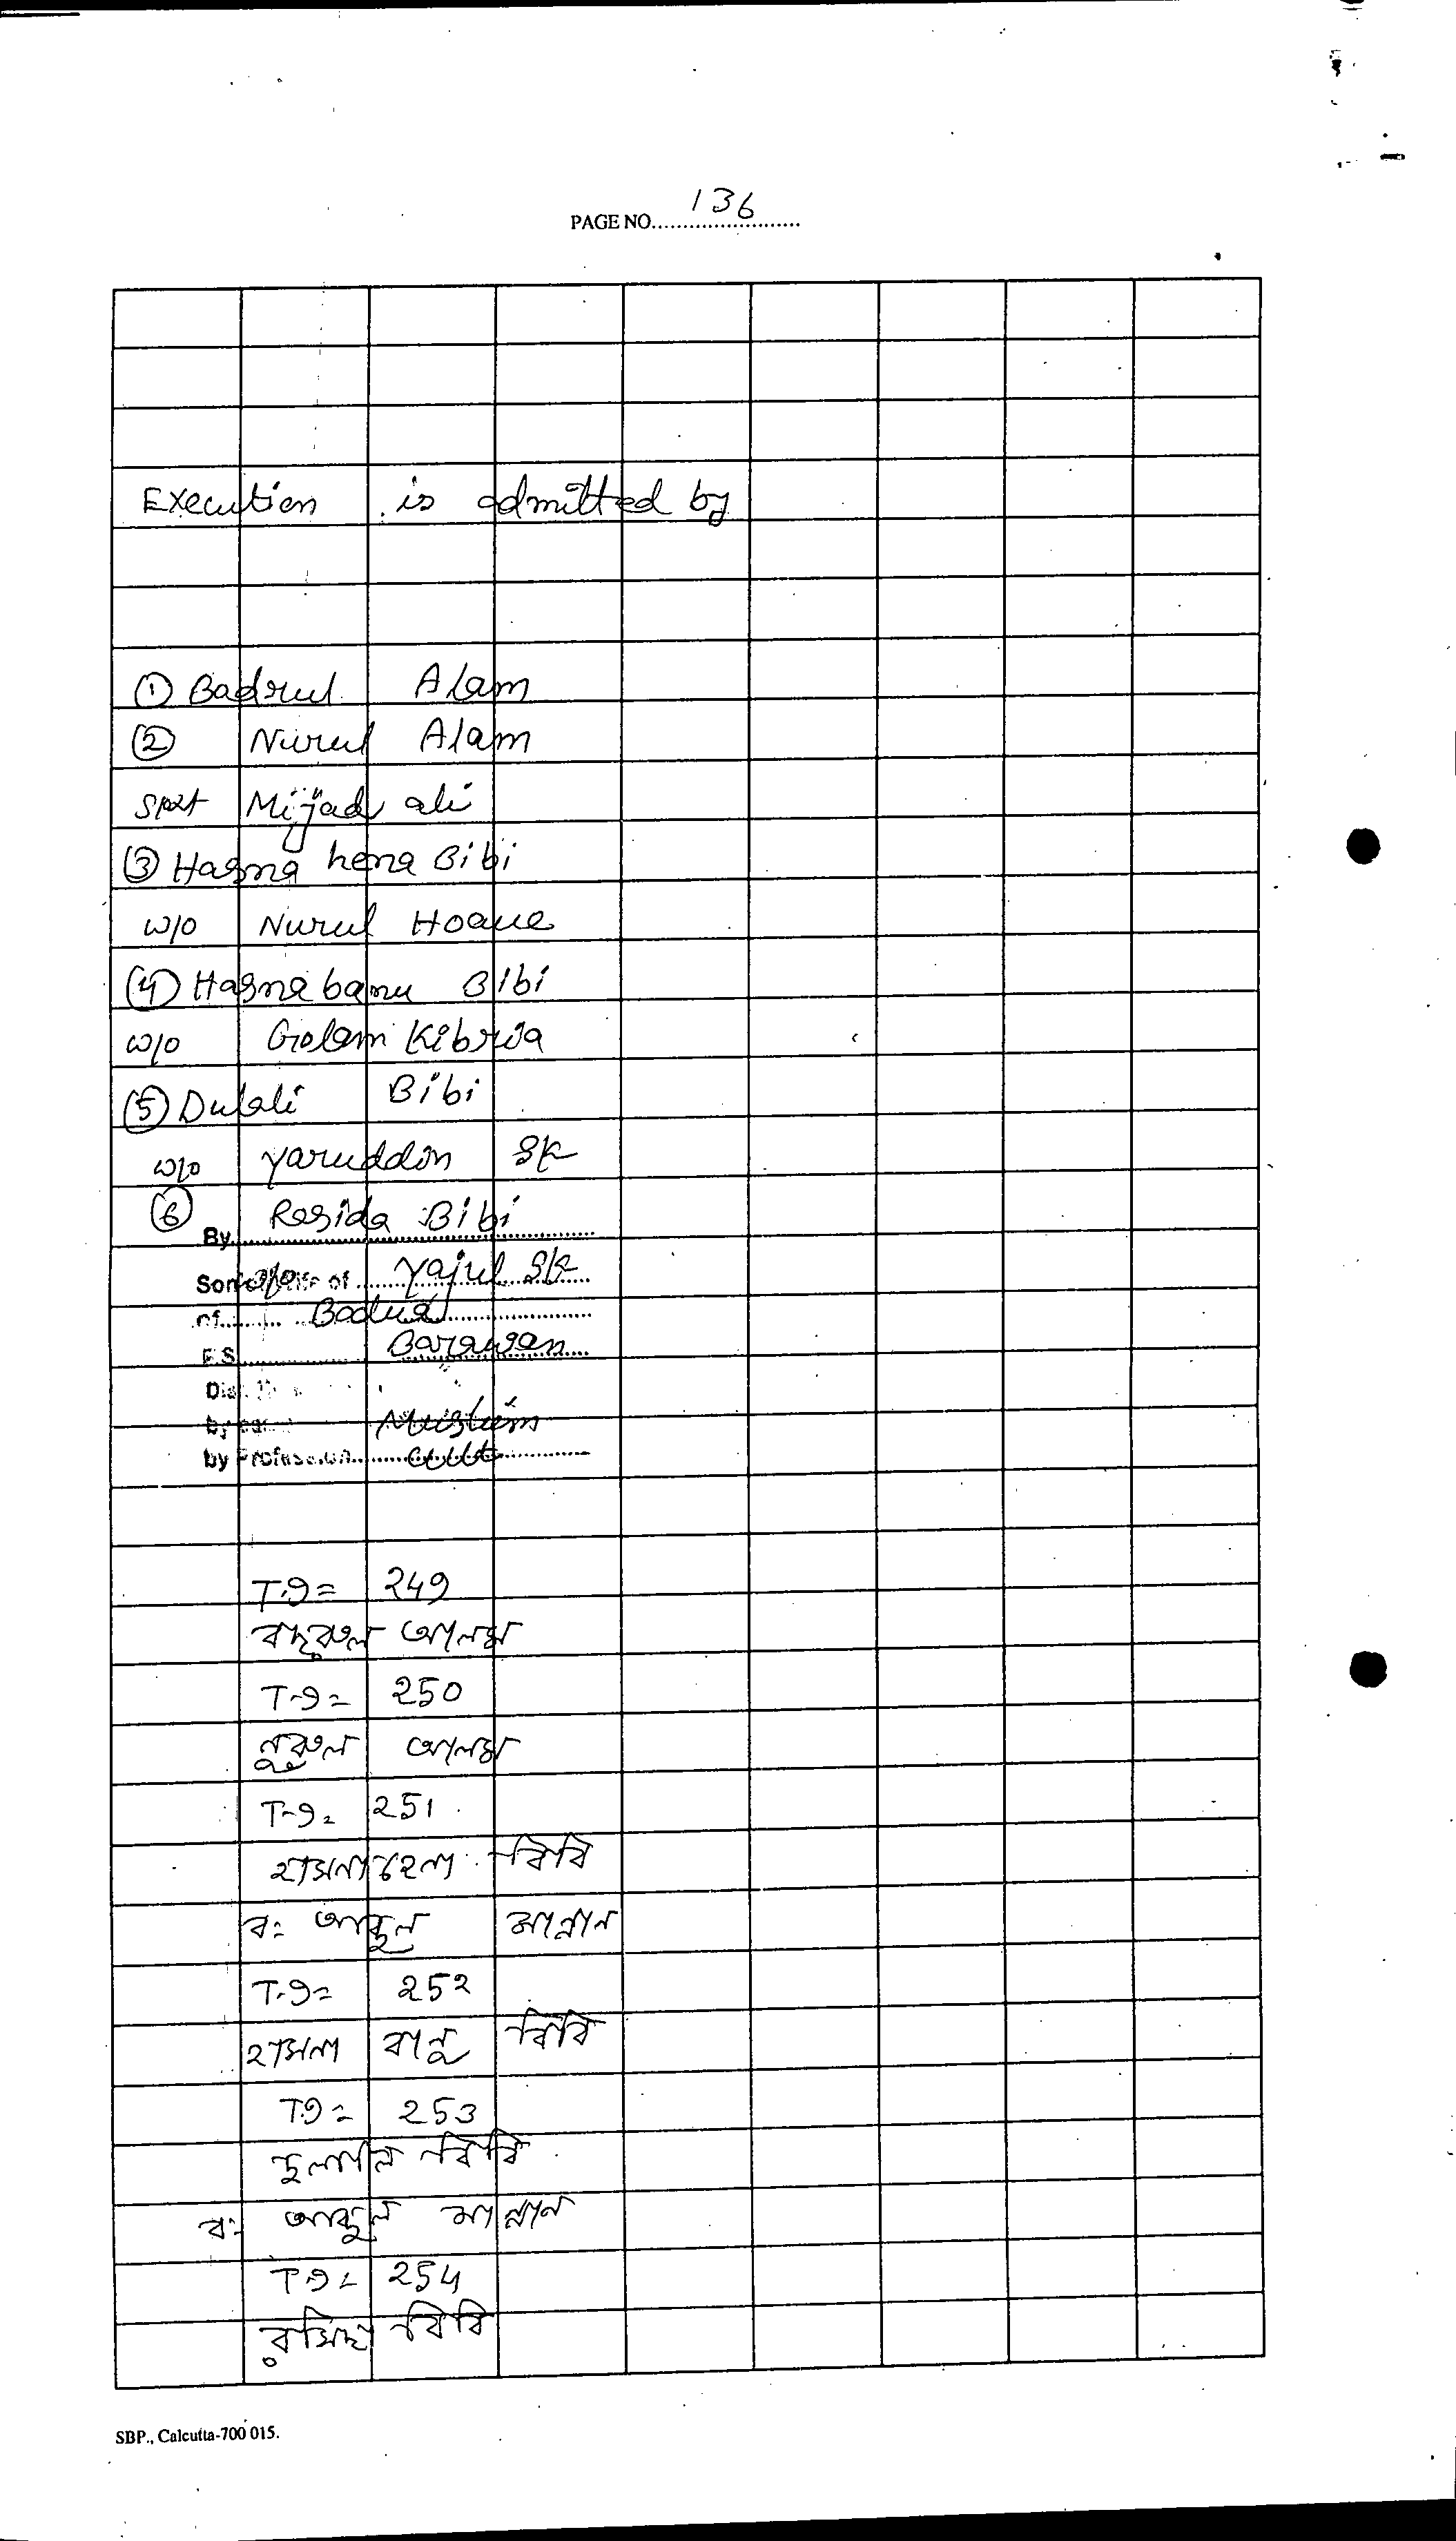 PAGE NO. 136
Execution is admitted by
① Badrul Alam
② Nurul Alam
Mijad ali
③ Hasna hena Bibi
w/o Nurul Hoque
④ Hasna banu Bibi
w/o Golam Kibria
⑤ Dulali Bibi
w/o Yaruddin Sk
⑥ Rasida Bibi
By
Son w/o Wife of Yajul Sk
of Badua
P.S. Barawan
Dist
by cast Muslim
by Profession Cult
T.9 = 249
বদরুল আলম
T-9 = 250
নুরুল আলম
T-9 = 251
হাসনাহেনা বিবি
ব: আব্দুল মান্নান
T.9 = 252
হাসনা বানু বিবি
T9 = 253
দুলালি বিবি
ব: আব্দুল মান্নান
T9 = 254
রসিদা বিবি
SBP., Calcutta-700 015.